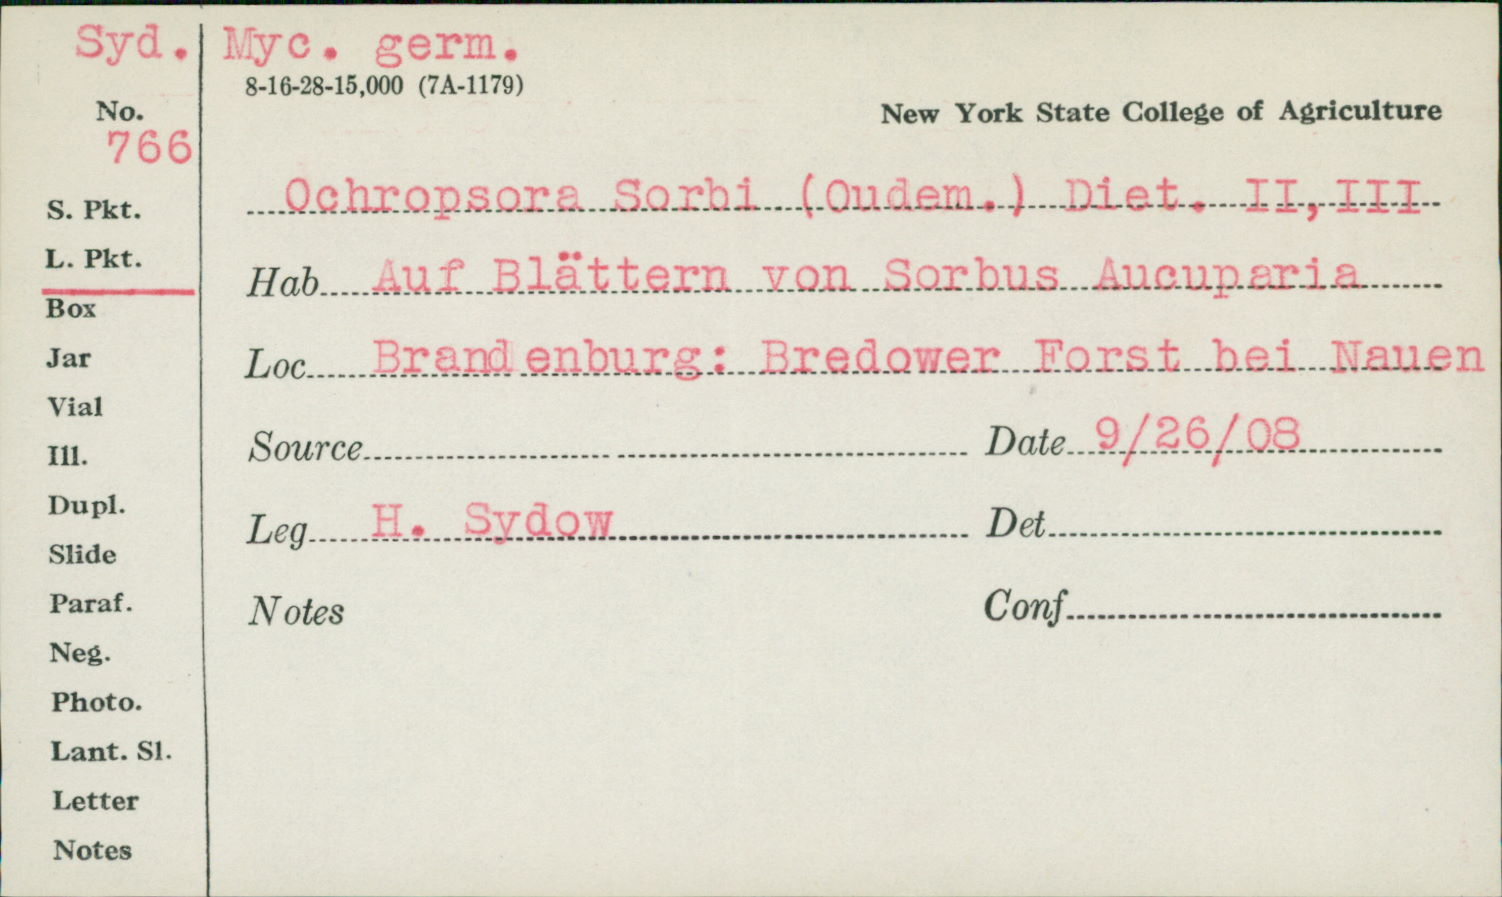 Syd. Myc. germ.
8-16-28-15,000 (7A-1179)
No.
766
New York State College of Agriculture
S. Pkt.
L. Pkt.
Box
Jar
Vial
Ill.
Dupl.
Slide
Paraf.
Neg.
Photo.
Lant. Sl.
Letter
Notes
Ochropsora Sorbi (Oudem.) Diet. II,III
Hab Auf Blättern von Sorbus Aucuparia
Loc Brandenburg: Bredower Forst bei Nauen
Source Date 9/26/08
Leg H. Sydow Det
Notes Conf